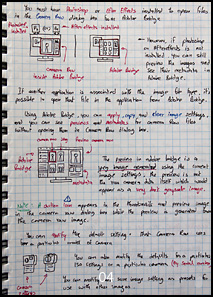 You must have Photoshop or After Effects installed to open files
in the Camera Raw dialog box from Adobe Bridge.
However, if photoshop
or AfterEffects is not
installed you can still
preview the images and
see their metadata in
Adobe Bridge.
Camera Raw
inside Adobe Bridge
Adobe Bridge
If another application is associated with the image file type, it's
possible to open that file in the application from Adobe Bridge.
Using Adobe Bridge, you can apply, copy and clear image settings,
and you can see previews and metadata for camera raw files
without opening them in Camera Raw dialog box.
Adobe
Bridge
metadata
The preview in adobe bridge is a
using the current
image settings; the preview is not
the camera raw data itself, which would
appear as a very dark grayscale image.
Note: A caution icon appears in the thumbnails and preview image
in the Camera Raw dialog box while the preview is generated from
the camera raw image.
You can modify the default settings that Camera Raw uses
for a particular model of camera.
You can also modify the defaults for a particular
ISO setting or a particular camera
04